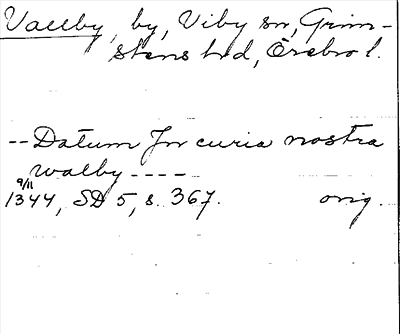 Vallby, by, Viby sn, Grim-
stens hd, Örebro l.
--Datum Jn curia nostra
walby ----
9/11
1344, SD 5, s. 367. orig.